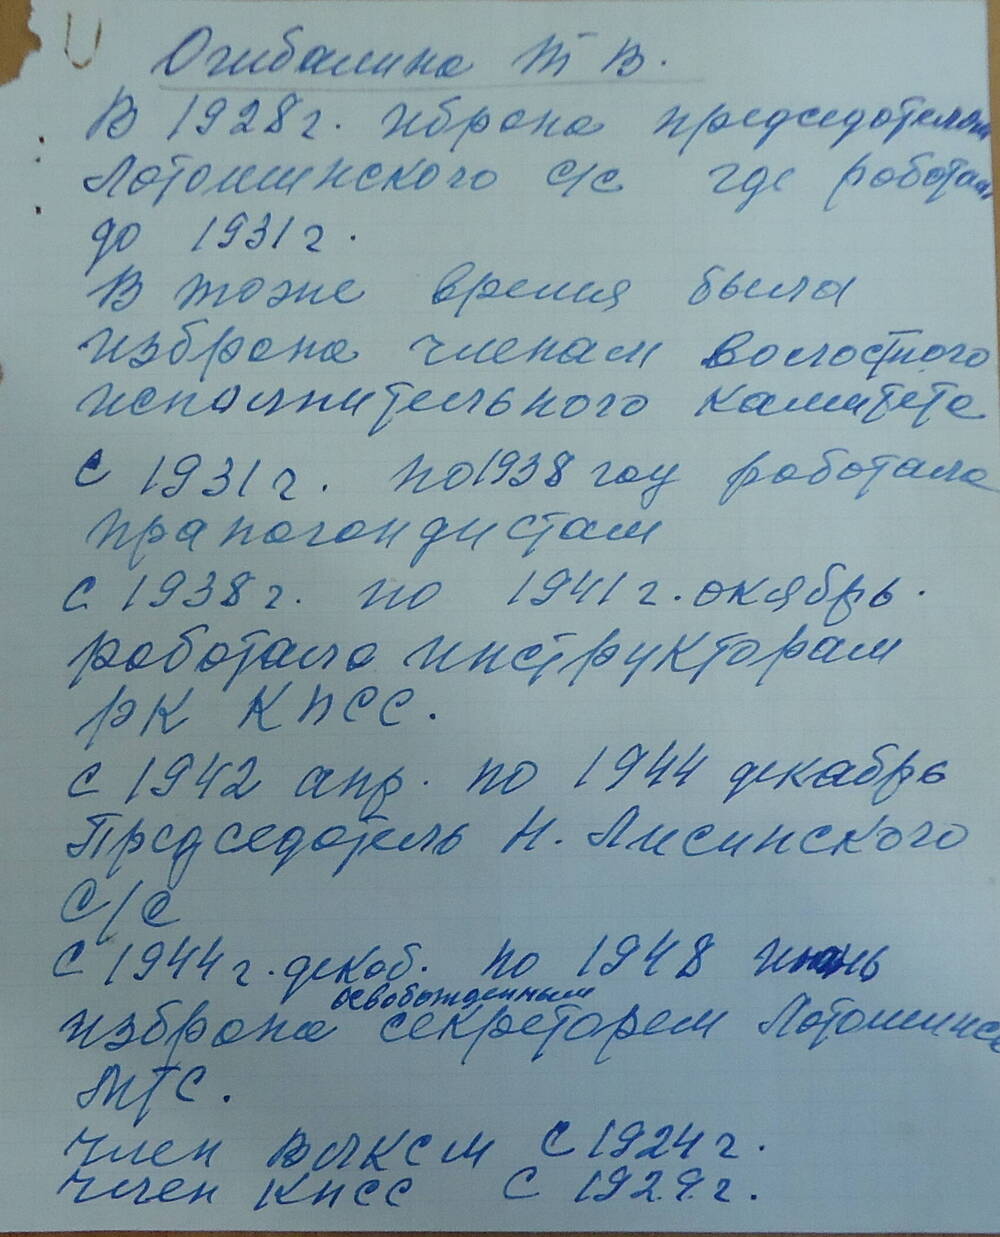 Огибалина Т В.
В 1928г. ибрана председателем
Лотошинского с/с где работала
до 1931г.
В тоже время была
избрана членам волостного
исполнительного камитета
С 1931г. по 1938 году работала
прапогондистам
С 1938г. по 1941г. октябрь.
работала инструкторам
РК КПСС.
С 1942 апр. по 1944 декабрь
Председатель Н. Лисинского
С/С
С 1944г. декаб. по 1948
освобожденным
избрана секретарем Лотошинс
МТС.
Член ВЛКСМ С 1924г.
Член КПСС С 1929г.